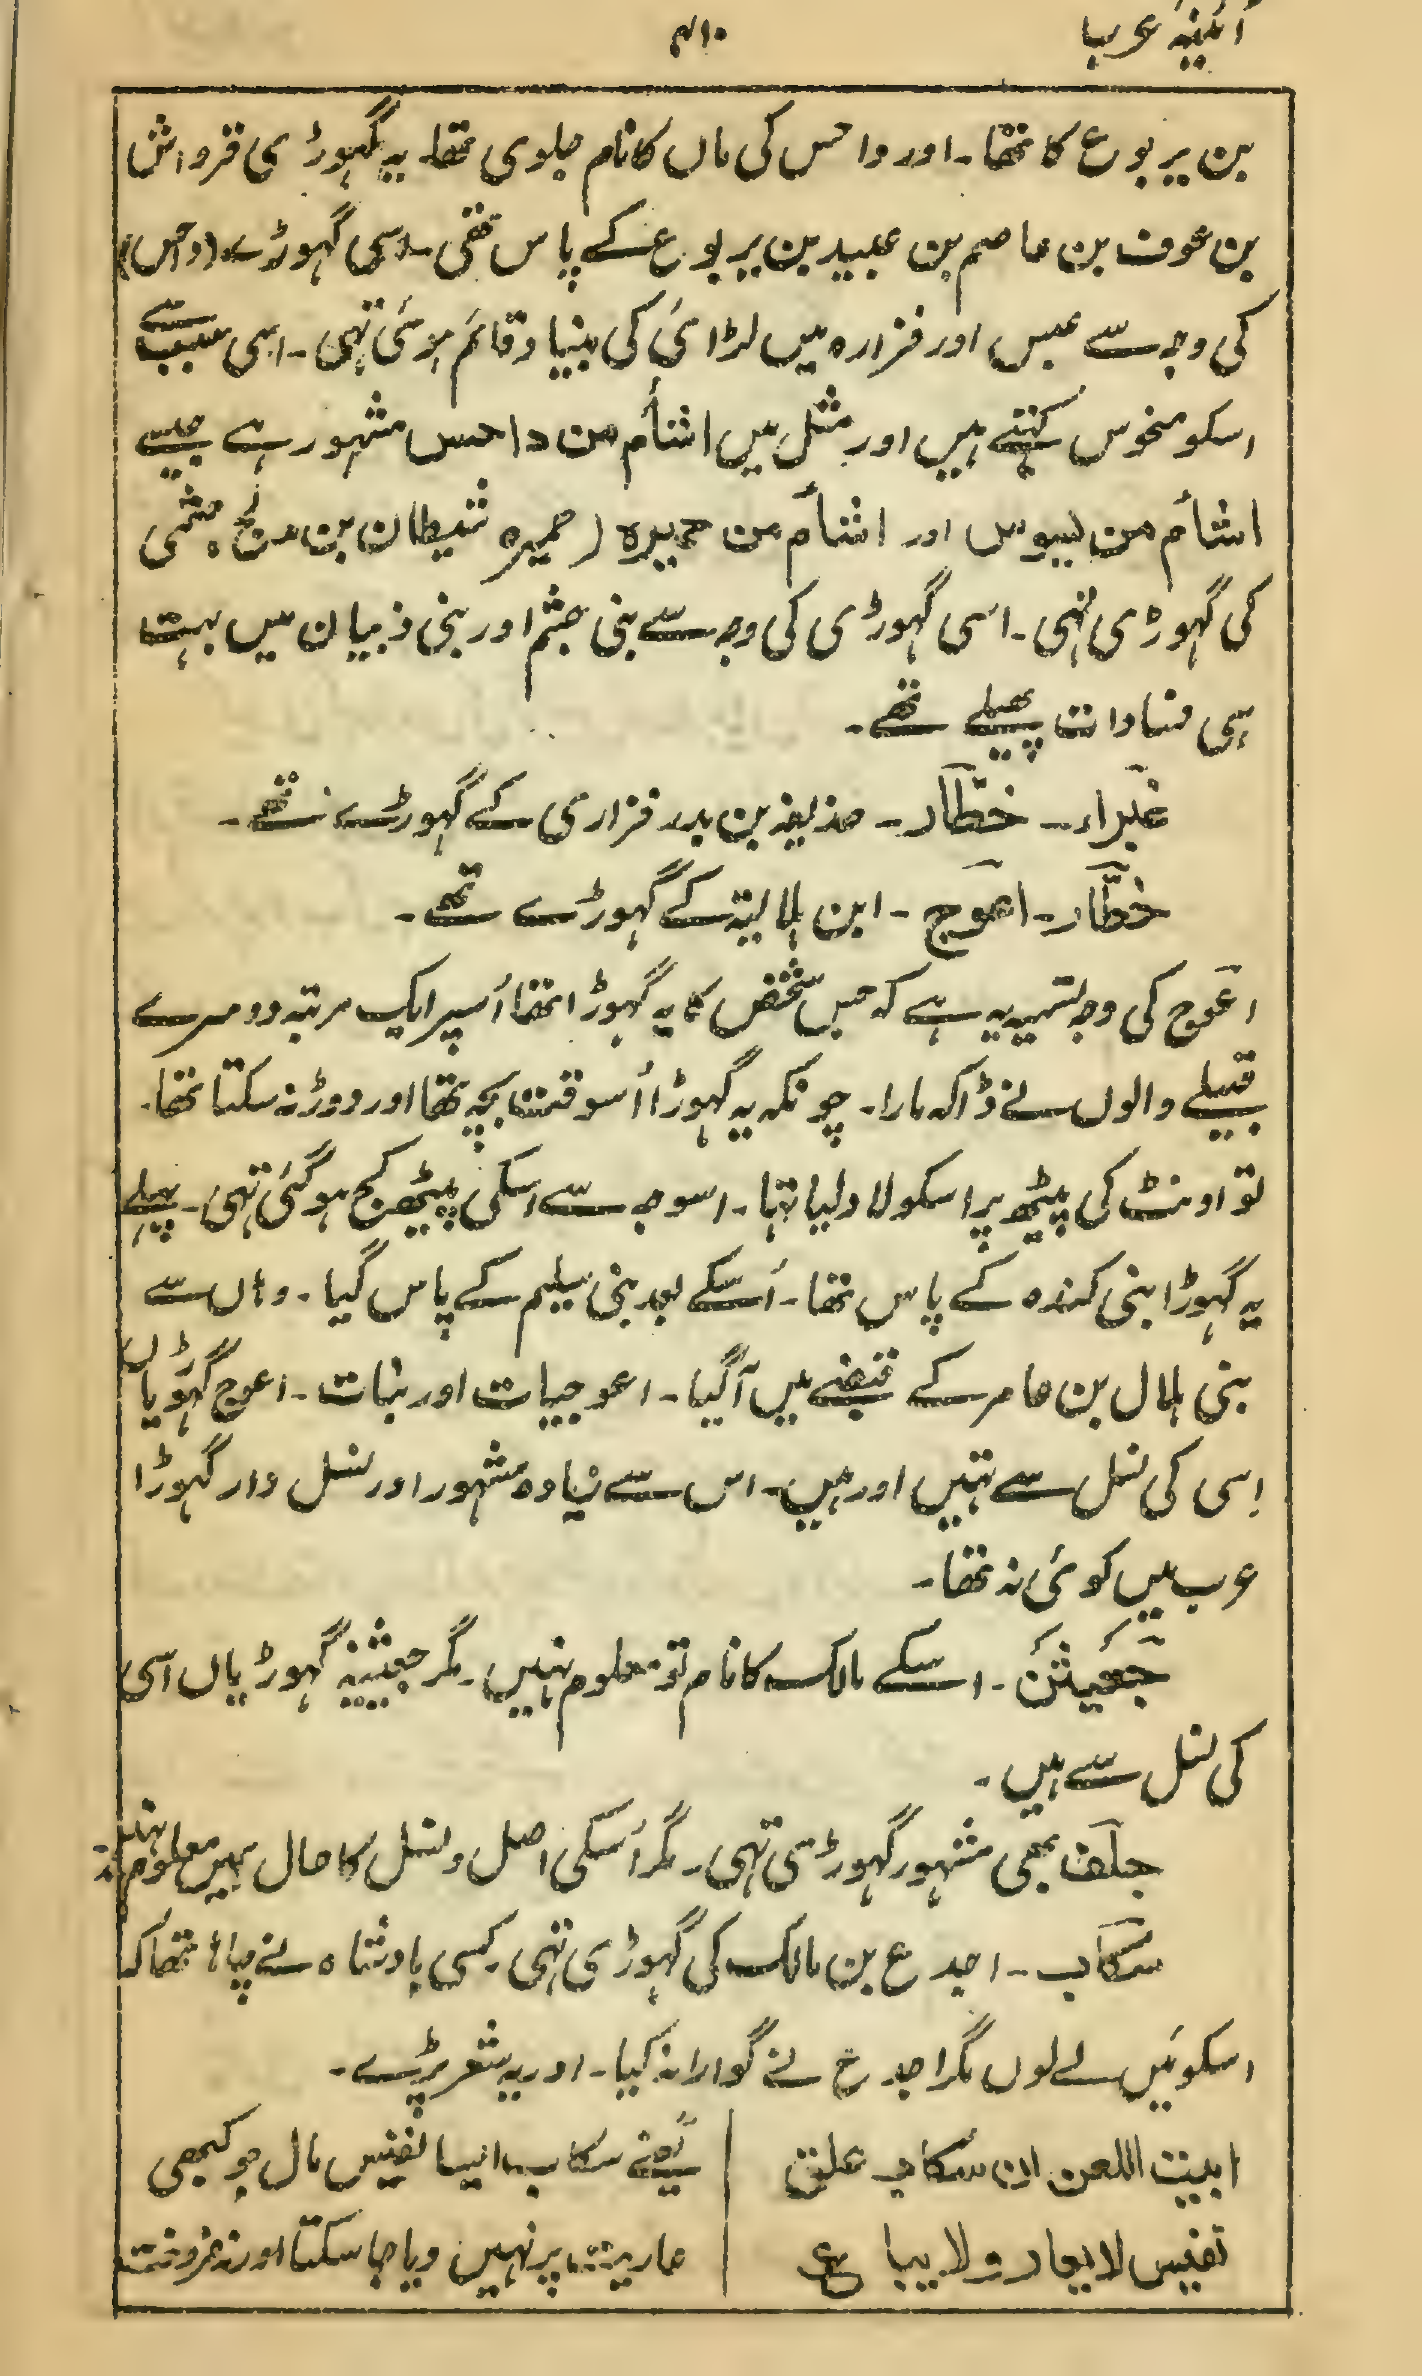 آئینہ عرب
۴۱۰
بن یربوع کا تھا۔ اور داحس کی ماں کا نام جلوی تھا۔ یہ گہوڑی قرواش
بن عوف بن عاصم بن عبید بن یربوع کے پاس تھی۔ اسی گہوڑے (داحس)
کی وجہ سے عبس اور فزارہ میں لڑائی کی بنیاد قائم ہوئی تہی۔ اسی سبب سے
اسکو منحوس کہتے ہیں اور مثل میں اشأم من داحس مشہور ہے جیسے
اشأم من بسوس اور اشأم من حمیرہ (حمیرہ شیطان بن مدلج جشمی
کی گہوڑی تہی۔ اسی گہوڑی کی وجہ سے بنی جشم اور بنی ذبیان میں بہت
ہی فسادات پھیلے تھے۔
غبراء۔ خطّار۔ حذیفہ بن بدر فزاری کے گہوڑے تھے۔
خطّار۔ اعوج۔ ابن ہلالیۃ کے گہوڑے تھے۔
اعوج کی وجہ تسمیہ یہ ہے کہ جس شخص کا یہ گہوڑا تھا اُسپر ایک مرتبہ دوسرے
قبیلے والوں نے ڈاکہ مارا۔ چونکہ یہ گہوڑا اُسوقت بچہ تھا اور دوڑ نہ سکتا تھا۔
تو اونٹ کی پیٹھ پر اسکو لاد لیا تہا۔ اسوجہ سے اسکی پیٹھ کج ہو گئی تہی۔ پہلے
یہ گہوڑا بنی کندہ کے پاس تھا۔ اُسکے بعد بنی سلیم کے پاس گیا۔ وہاں سے
بنی ہلال بن عامر کے قبضے میں آگیا۔ اعوجیات اور بنات۔ اعوج گہوڑیاں
اِسی کی نسل سے تہیں اور ہیں۔ اس سے زیادہ مشہور اور نسل دار گہوڑا
عرب میں کوئی نہ تھا۔
جَعَیثَن۔ اسکے مالک کا نام تو معلوم نہیں۔ مگر جعیثینہ گہوڑیاں اسی
کی نسل سے ہیں۔
جلَف بھی مشہور گہوڑی تہی۔ مگر اُسکی اصل و نسل کا حال ہمیں معلوم نہیں
سکاب۔ اجدع بن مالک کی گہوڑی تہی۔ کسی بادشاہ نے چاہا تھا کہ
اسکو میں لے لوں مگر اجدع نے گوارا نہ کیا۔ اور یہ شعر پڑہے۔
ابیت اللعن ان سکاب علق
یَعنے سکاب ایسا نفیس مال جو کبھی
نفیس لا یعار ولا یباع
عاریت پر نہیں دیا جا سکتا اور نہ فروخت